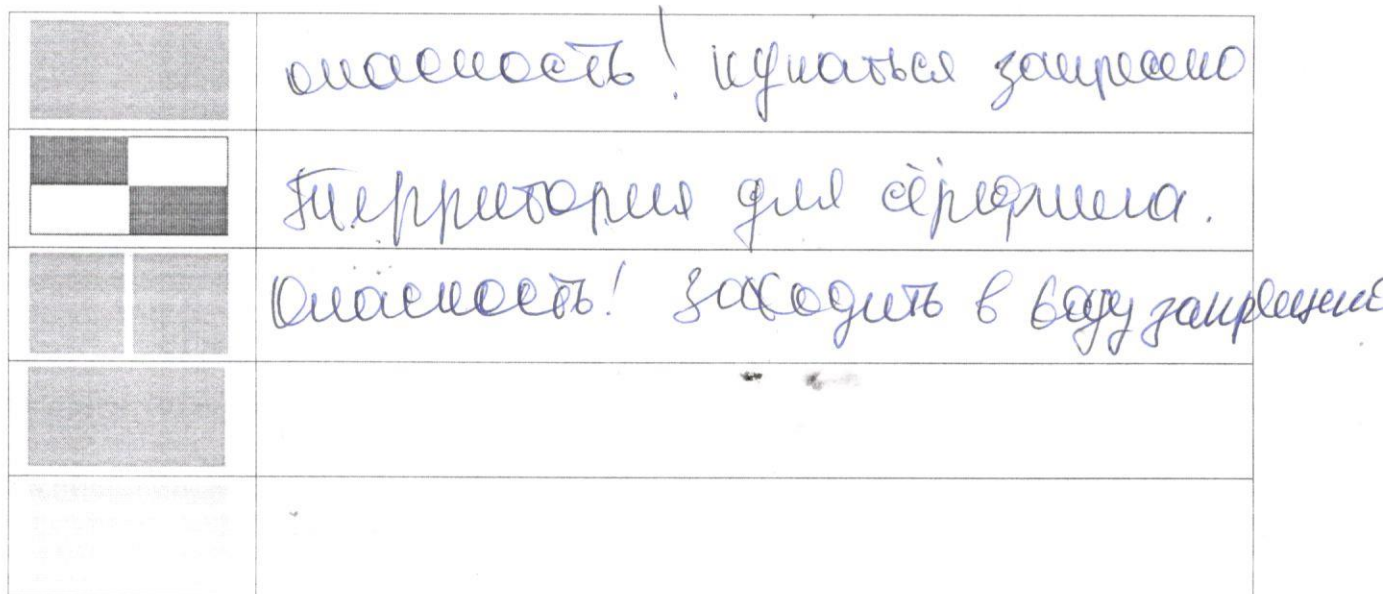 опасность! купаться запрещено
Территория для сёрфинга.
Опасность! Заходить в воду запрещено